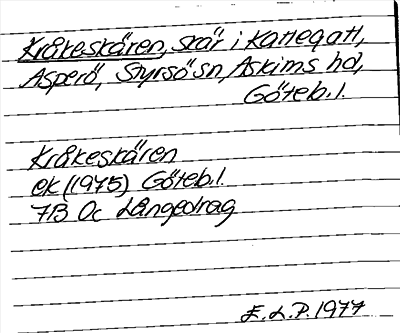 Kråkeskären, skär i Kattegatt,
Asperö, Styrsö sn, Askims hd,
Göteb. l.
Kråkeskären
ek (1975) Göteb. l.
7B 0c Långedrag
E. L. P. 1977